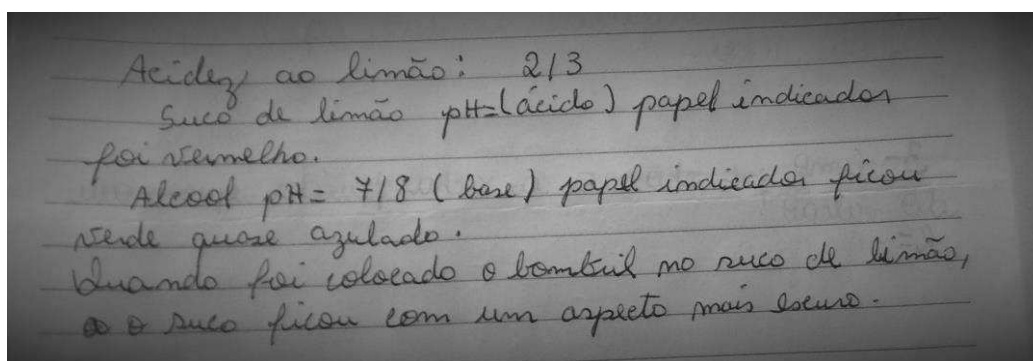 Acidez ao limão: 2/3
Suco de limão pH=(ácido) papel indicador
foi vermelho.
Alcool pH= 7/8 (base) papel indicador ficou
verde quase azulado.
Quando foi colocado o bombril no suco de limão,
o suco ficou com um aspecto mais escuro.